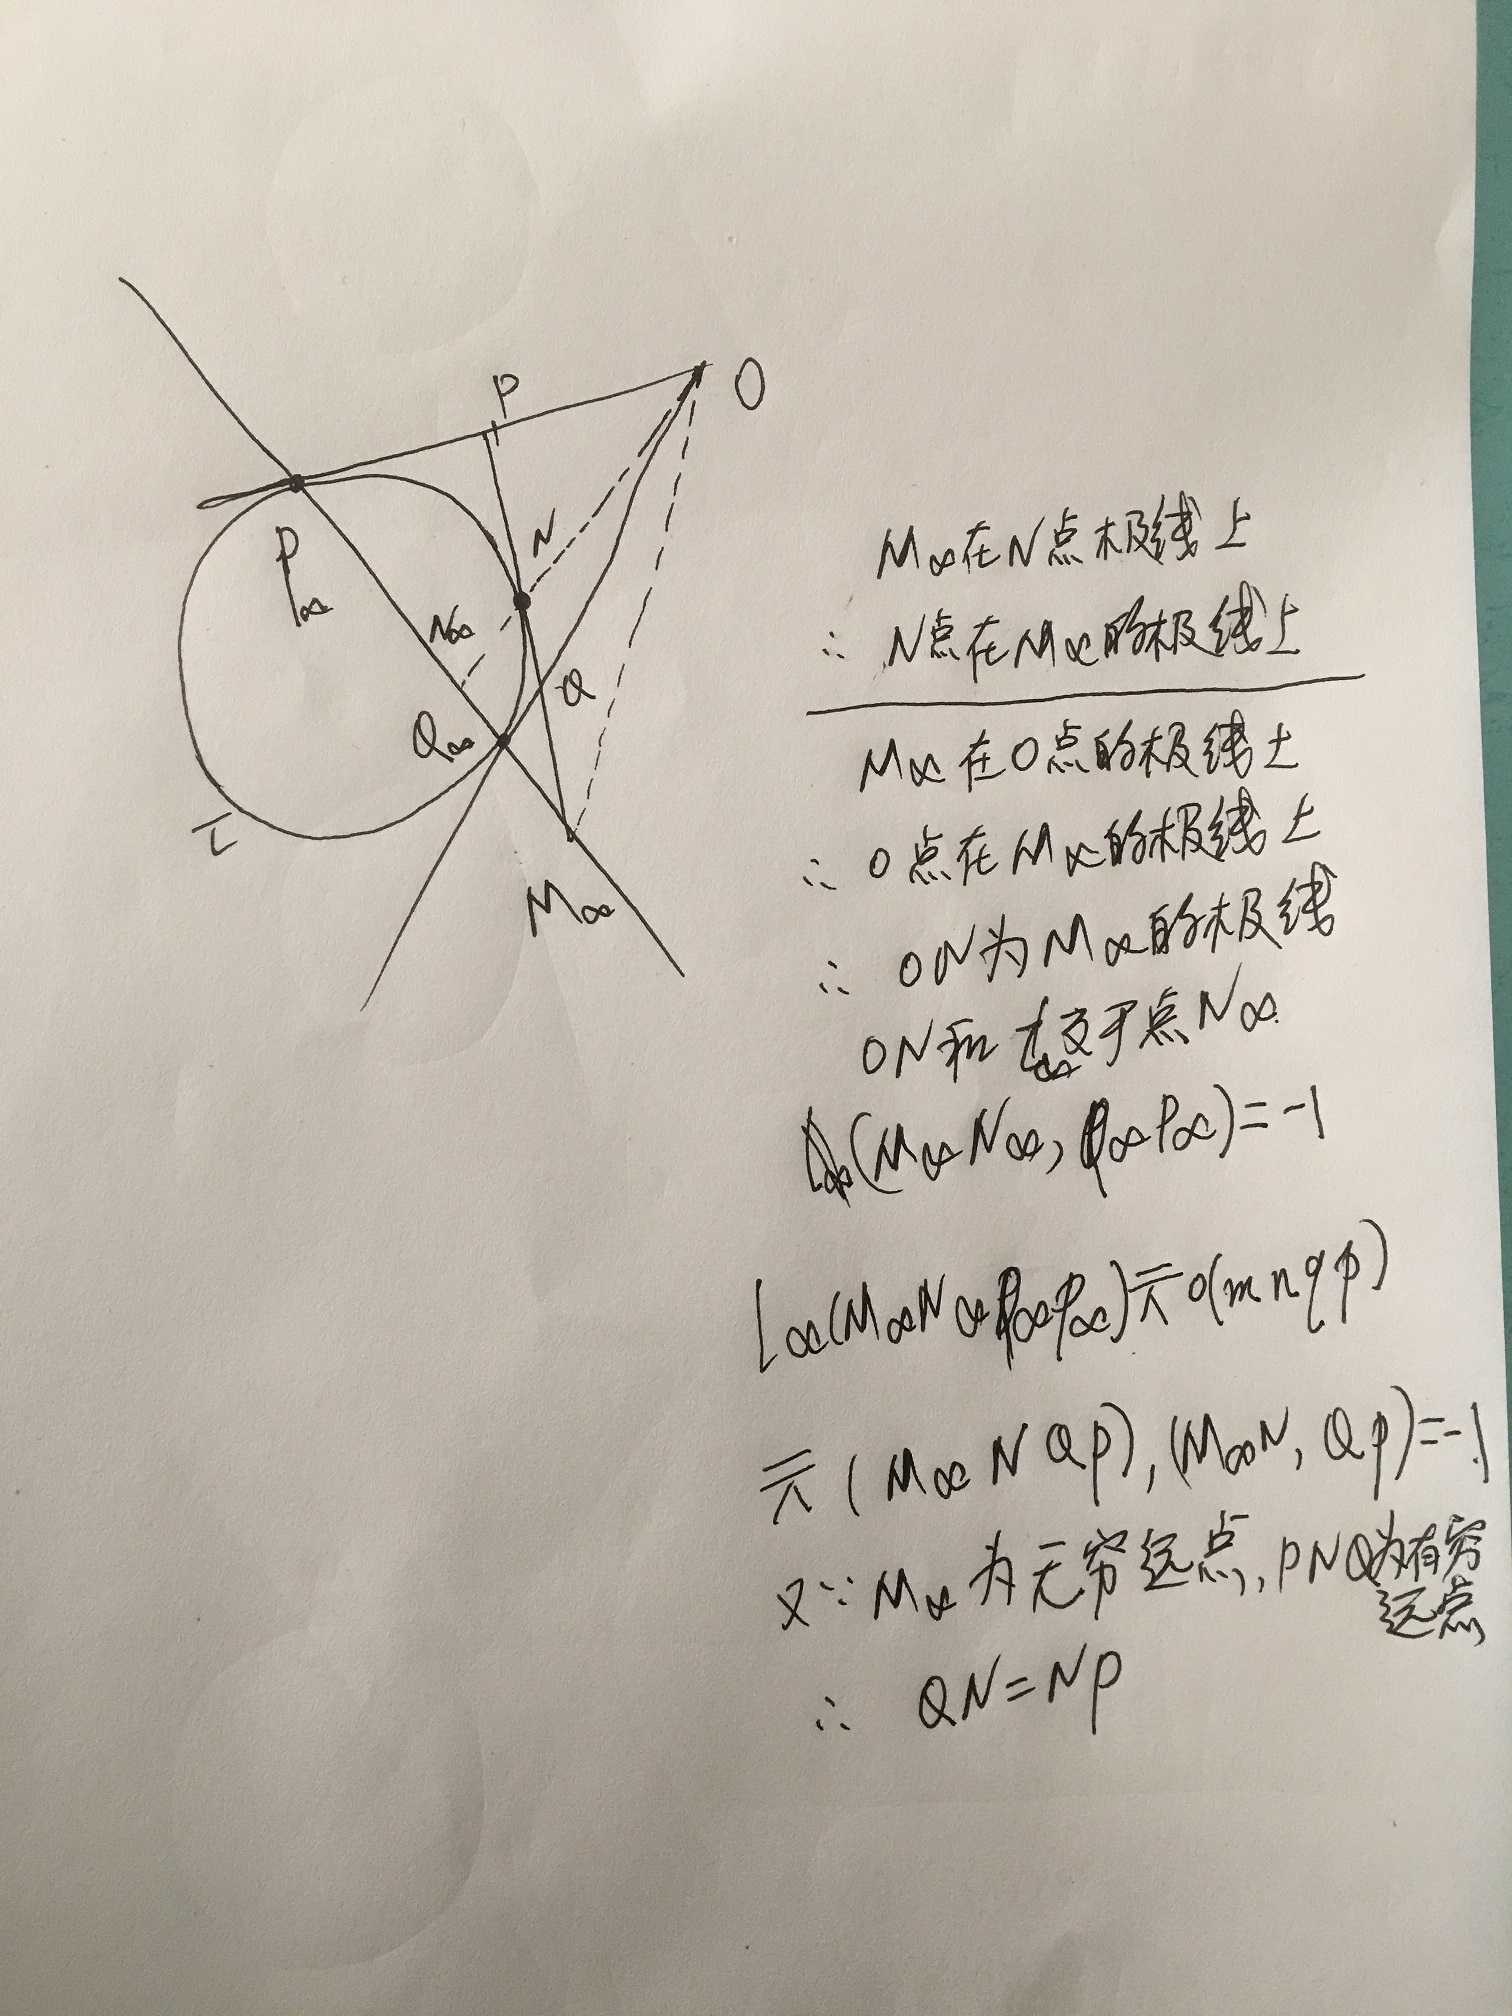 P
O
N
P∞
N∞
Q
Q∞
M∞
M∞在N点极线上
∴ N点在M∞的极线上
M∞在O点的极线上
∴ O点在M∞的极线上
∴ ON为M∞的极线
ON和l∞交于点N∞
(M∞N∞, Q∞P∞)=-1
l∞(M∞N∞Q∞P∞)⌅o(mnqp)
⌅(M∞NQP),(M∞N, QP)=-1
又∵M∞为无穷远点,PNQ为有穷
远点
∴ QN=NP